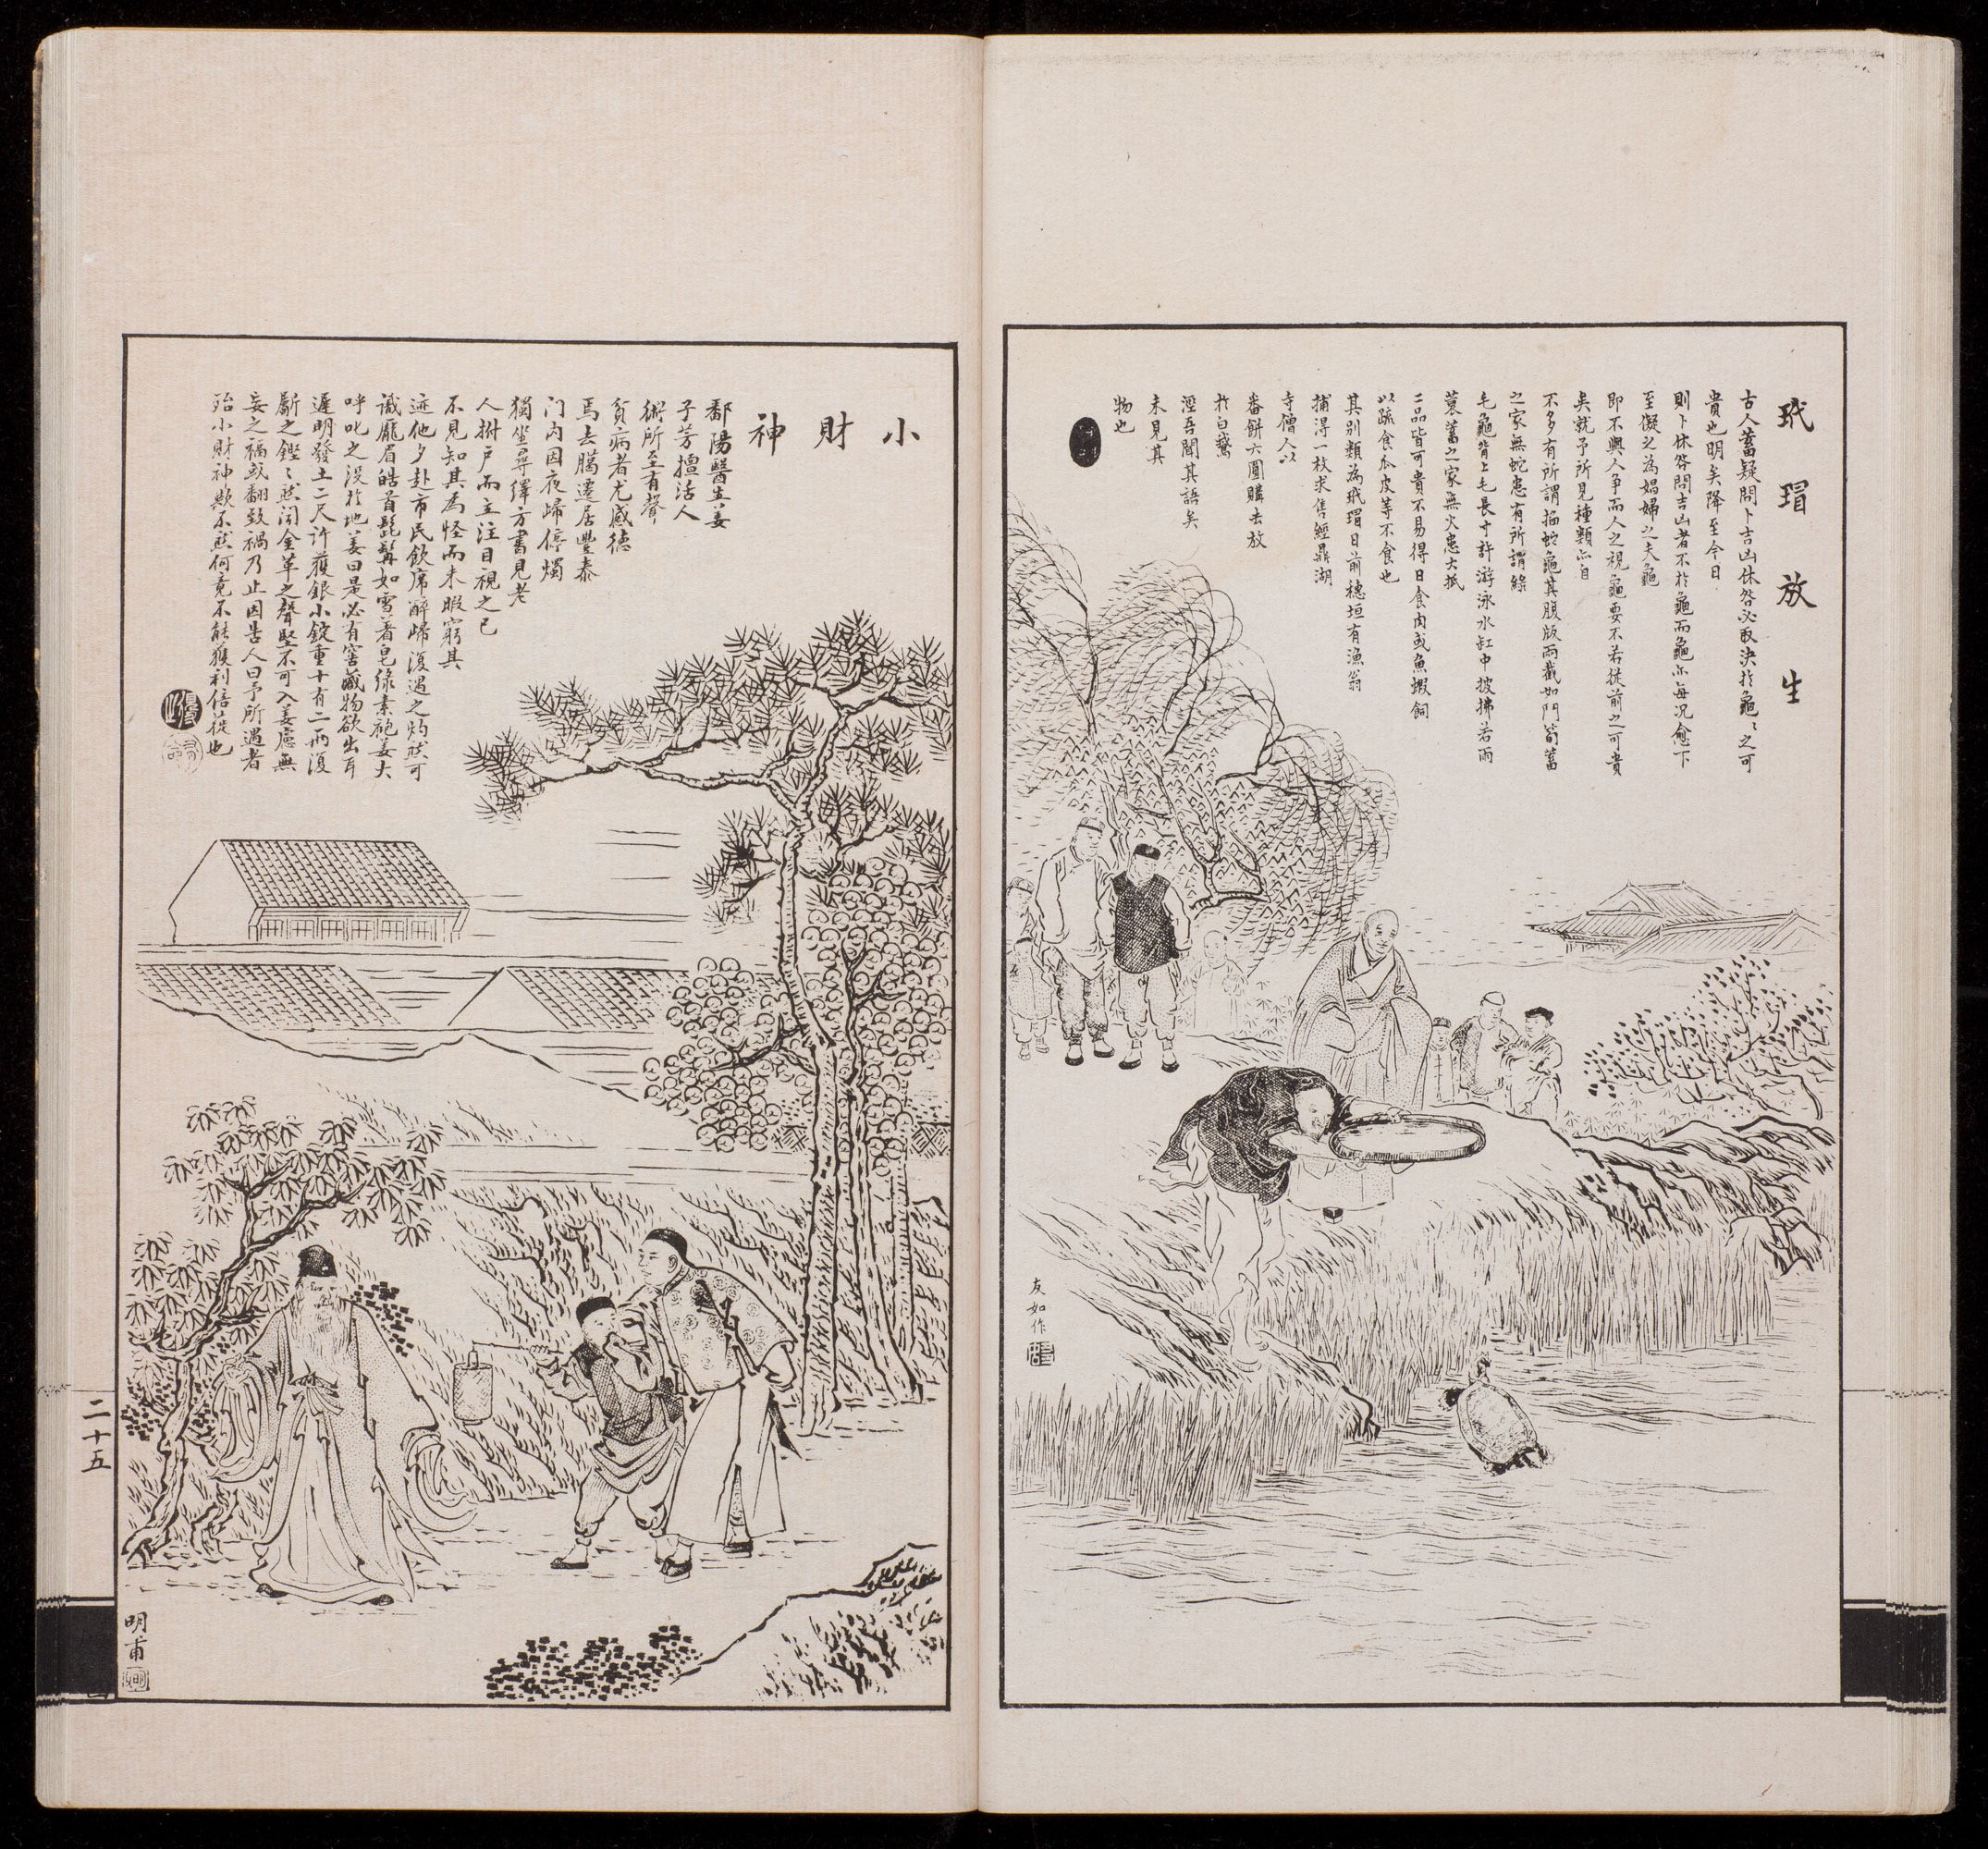 玳瑁放生
古人蓄疑問卜吉凶休咎必取決於龜〻之可
貴也明矣降至今日
則卜休咎問吉凶者不於龜而龜亦每況愈下
至儗之為娼婦之夫龜
即不與人爭而人之視龜要不若從前之可貴
矣就予所見種類亦自
不多有所謂掐蛇龜其腹版兩截如門筍蓄
之家無蛇患有所謂綠
毛龜背上毛長寸許游泳水缸中披拂若雨
蓑蓄之家無火患大抵
二品皆可貴不易得日食肉或魚蝦飼
以蔬食瓜皮等不食也
其別類為玳瑁日前穗垣有漁翁
捕得一枚求售經鼎湖
寺僧人以
番餅六圓購去放
於白鵞
潭吾聞其語矣
未見其
物也
友如作
小財神
鄱陽醫生姜
子芳擅活人
術所至有聲
貧病者尤感德
焉去臘遷居豐泰
门内因夜歸停燭
獨坐尋繹方書見老
人拊戶而立注目視之已
不見知其為怪而未暇窮其
迹他夕赴市民飲席醉歸復遇之灼然可
識龐眉皓首髭髯如雪著皂綠素袍姜大
呼叱之没於地姜曰是必有窖藏物欲出耳
遲明發土二尺许獲銀小錠重十有二兩復
斸之鏗〻然闻金革之聲堅不可入姜慮無
妄之福或翻致禍乃止因告人曰予所遇者
殆小財神歟不然何竟不能獲利倍蓰也
明甫
二十五